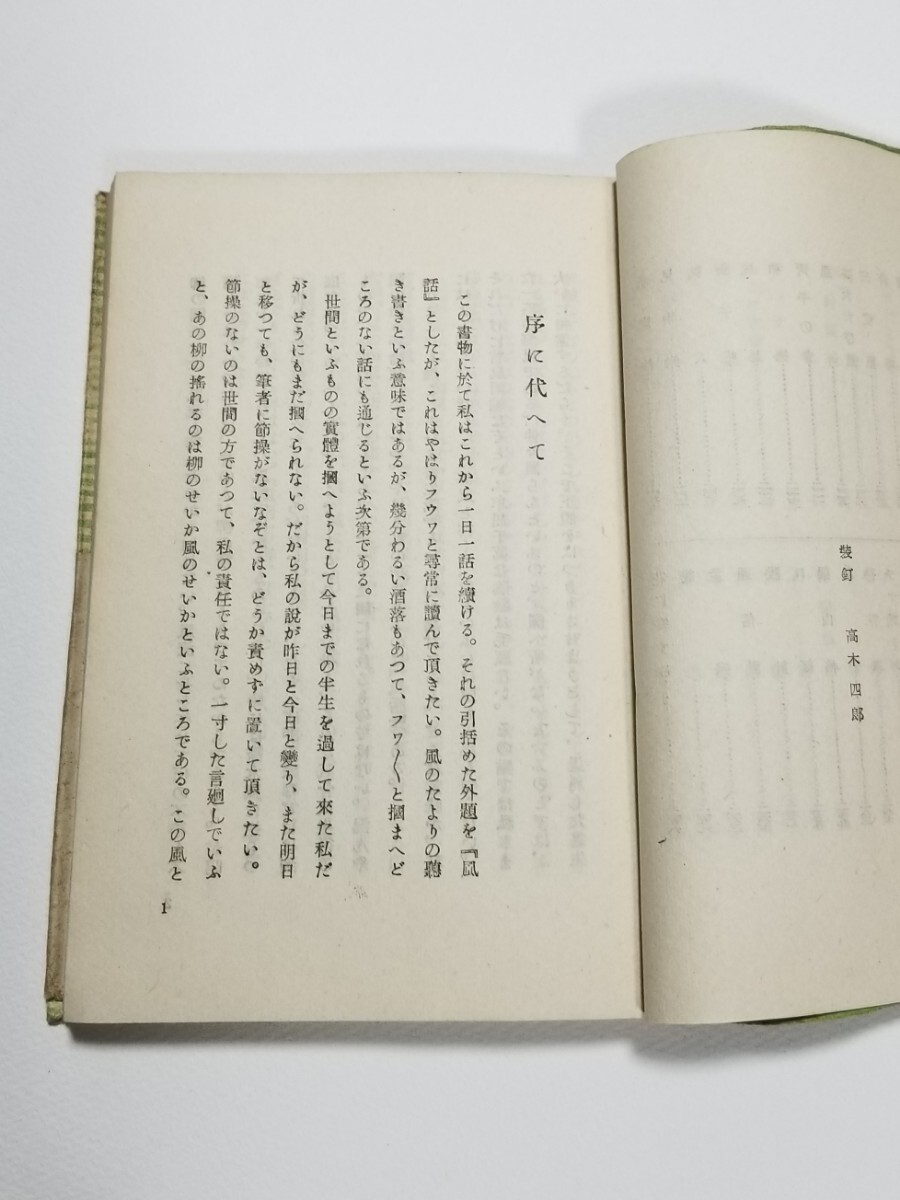 装釘　高木四郎
序に代へて
この書物に於て私はこれから一日一話を續ける。それの引括めた外題を『風
話』としたが、これはやはりフウワと尋常に讀んで頂きたい。風のたよりの聽
き書きといふ意味ではあるが、幾分わるい洒落もあつて、フワ〳〵と摑まへど
ころのない話にも通じるといふ次第である。
世間といふものの實體を摑へようとして今日までの半生を過して來た私だ
が、どうにもまだ摑へられない。だから私の說が昨日と今日と變り、また明日
と移つても、筆者に節操がないなぞとは、どうか責めずに置いて頂きたい。
節操のないのは世間の方であつて、私の責任ではない。一寸した言廻しでいふ
と、あの柳の搖れるのは柳のせいか風のせいかといふところである。この風と
1